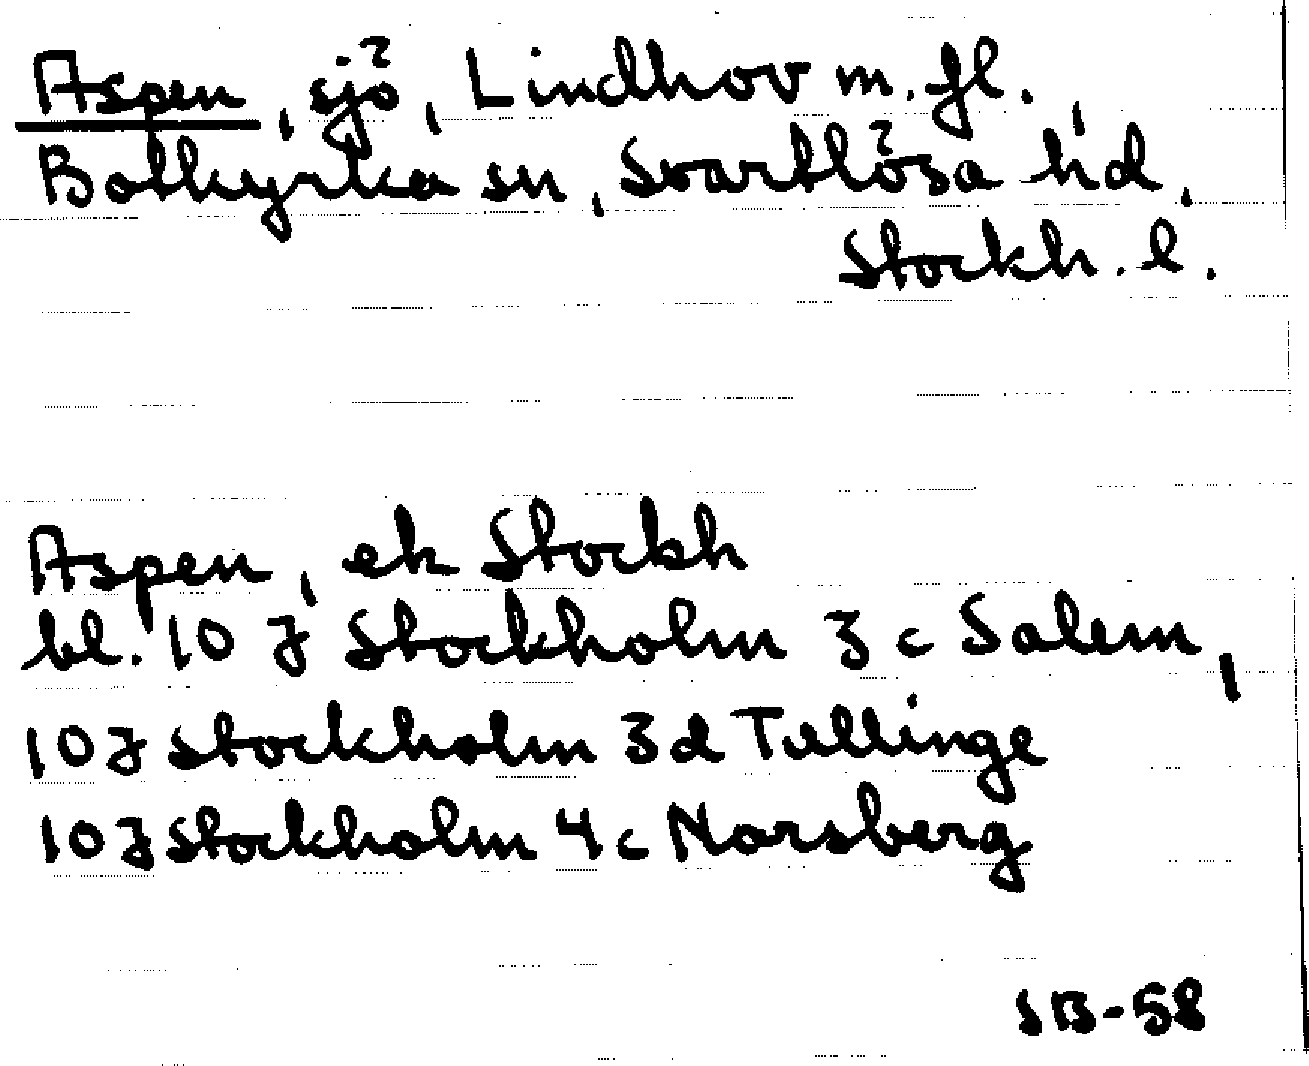 Aspen, sjö, Lindhov m. fl.,
Botkyrka sn, Svartlösa hd,
Stockh. l.
Aspen, ek Stockh
bl. 10 J Stockholm 3 c Salem,
10 J Stockholm 3 d Tullinge
10 J Stockholm 4 c Norsberg
SB-58